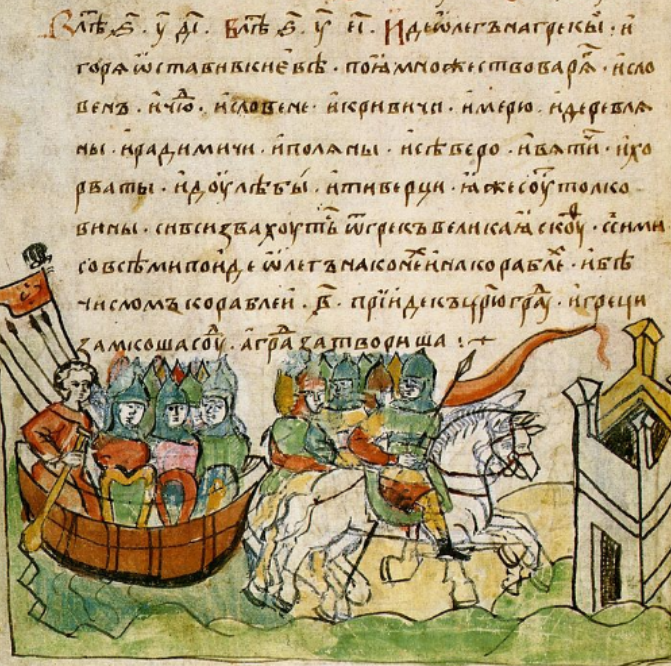 В лѣⷮ ҂ѕ҃ · у҃ · дı҃ · В лѣⷮ ҂ѕ҃ · у҃ · еı҃ · Идеѡлегънагрекы · и
горѧѡставивкиевѣ · поꙗмножествоварѧ · исло
венъ · ичюⷣ · исловене · икривичи · имерю · идеревлѧ
ны · ирадимичи · иполѧны · исѣверо · ивѧти · ихо
рваты · идоулѣбы · итиверци · ꙗжесоутолко
вины · сивсизвахоутьⷭ ѿгрекъвеликаꙗскоуⷴ · ссими
совсѣмипоидеѡлегънаконеⷯинакораблеⷯ · ивѣ
числомъкораблеи · в҃ · прıидекъцрⷭюграⷣу · игреци
замкошасоуⷣ · аграⷣзатвориша :